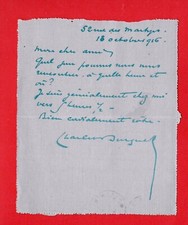 51 rue des Martyrs
18 octobre 1916
Mon cher ami,
Quel jour pouvons nous nous
rencontrer - à quelle heure et
où ?
Je suis généralement chez moi
vers 7 heures ½
Bien cordialement votre
Charles